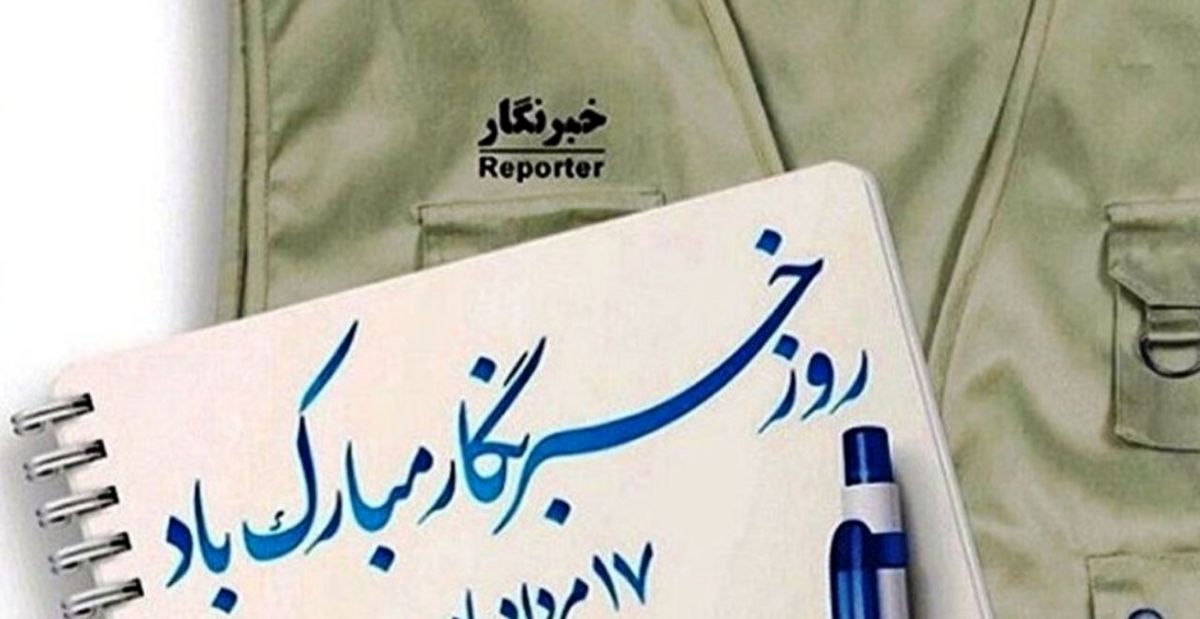 خبرنگار
Reporter
روز خبرنگار مبارک باد
۱۷ مرداد